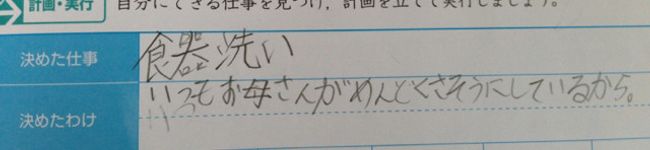 計画・実行
自分にできる仕事を見つけ、計画を立てて実行しましょう。
決めた仕事
食器洗い
いつもお母さんがめんどくさそうにしているから。
決めたわけ